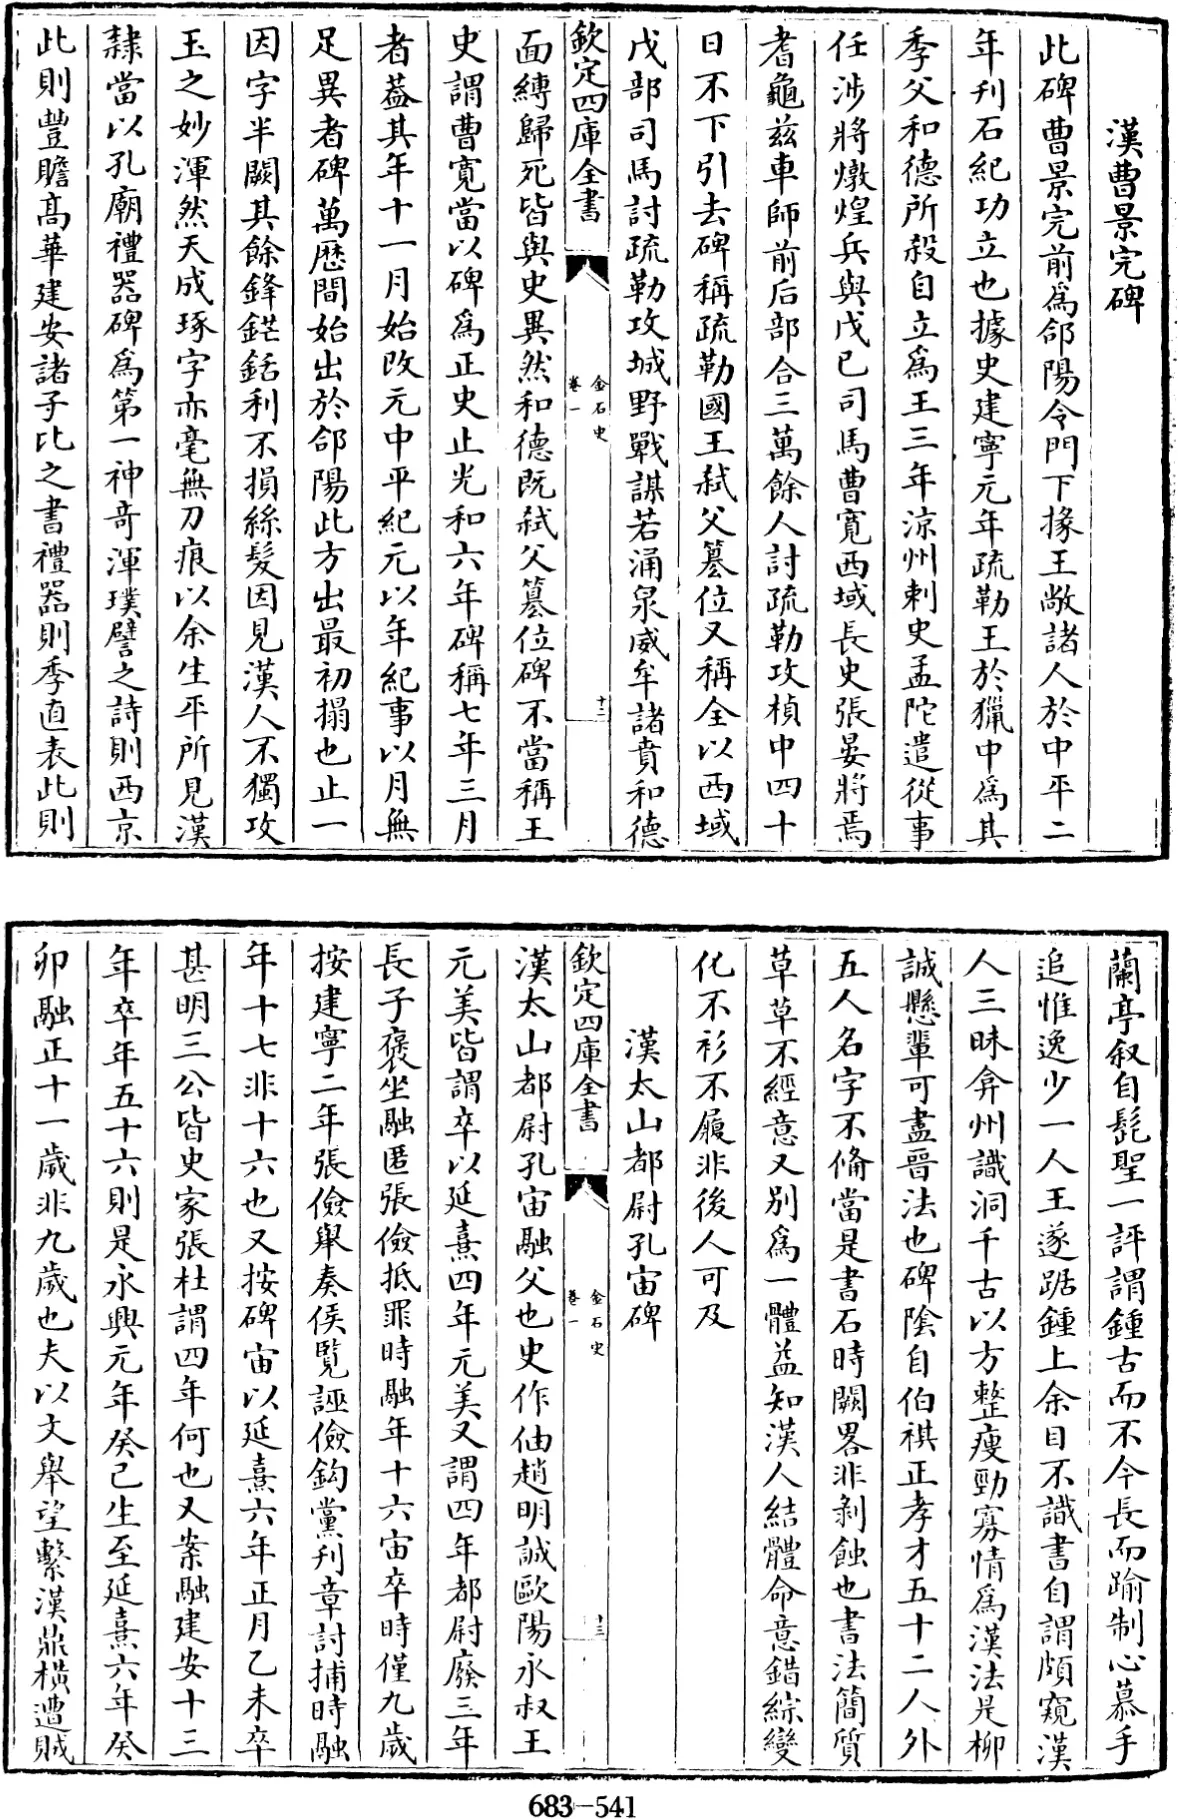 漢曹景完碑
此碑曹景完前爲郃陽令門下掾王敞諸人於中平二
年刋石紀功立也據史建寧元年疏勒王於獵中爲其
季父和德所殺自立爲王三年涼州刺史孟陀遣從事
任涉將燉煌兵與戊已司馬曹寛西域長史張晏將焉
耆龜兹車師前后部合三萬餘人討疏勒攻楨中四十
日不下引去碑稱疏勒國王弑父簒位又稱全以西域
戊部司馬討疏勒攻城野戰謀若涌泉威牟諸賁和德
欽定四庫全書
金石史
卷一
十二
面縛歸死皆與史異然和德既弑父簒位碑不當稱王
史謂曹寛當以碑爲正史止光和六年碑稱七年三月
者葢其年十一月始改元中平紀元以年紀事以月無
足異者碑萬歷間始出於郃陽此方出最初搨也止一
因字半闕其餘鋒鋩銛利不損絲髮因見漢人不獨攻
玉之妙渾然天成琢字亦毫無刀痕以余生平所見漢
隸當以孔廟禮器碑爲第一神竒渾璞譬之詩則西京
此則豐贍髙華建安諸子比之書禮器則季直表此則
蘭亭叙自髡聖一評謂鍾古而不今長而踰制心慕手
追惟逸少一人王遂踞鍾上余目不識書自謂頗窺漢
人三昧弇州識洞千古以方整痩勁寡情爲漢法是柳
誠懸輩可盡晉法也碑陰自伯祺正孝才五十二人外
五人名字不脩當是書石時闕畧非剝蝕也書法簡質
草草不經意又别爲一體益知漢人結體命意錯綜變
化不衫不履非後人可及
漢太山都尉孔宙碑
欽定四庫全書
金石史
卷一
十三
漢太山都尉孔宙融父也史作伷趙明誠歐陽永叔王
元美皆謂卒以延熹四年元美又謂四年都尉廢三年
長子褒坐融匿張儉抵罪時融年十六宙卒時僅九歲
按建寧二年張儉舉奏侯覽誣儉鈎黨刋章討捕時融
年十七非十六也又按碑宙以延熹六年正月乙未卒
甚明三公皆史家張杜謂四年何也又案融建安十三
年卒年五十六則是永興元年癸已生至延熹六年癸
卯融正十一歲非九歲也夫以文舉望繫漢鼎橫遭賊
683-541